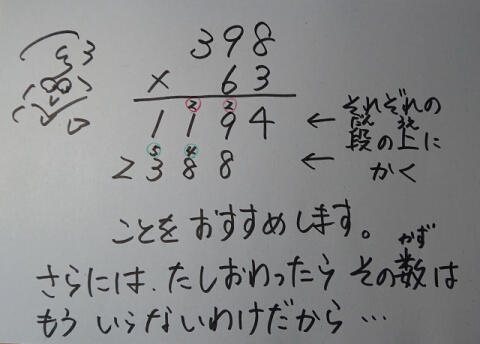 398
× 63
2 2
1194
5 4
2388
← それぞれの
だん うえ
段の上に
← かく
ことをおすすめします。
かず
さらには、たしおわったら その数は
もう いらないわけだから…